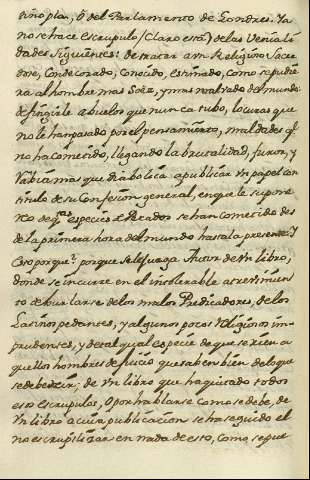 rinopla, ó del Parlamento de Londres. Ya
no se hace Escrupulo (Claro está) de las Veniali
dades siguientes: de tratar à un Religioso Sacer
dote, Condecorado, Conocido, estimado, como se pudie
ra al hombre mas Soèz, y mas malvado del mundo:
de fingirle abuelos que nunca tubo, locuras que
no le han pasado por el pensamiento, maldades qe
no ha cometido, llegando la brutalidad, furor, y
rabia mas que diabolica a publicar un papel con
titulo de su Confesion general, en que le supone
reo de qtas especies de Pecados se han cometido des
de la primera hora del mundo hasta la presente. Y
esto porque? porque se le juzga Autor de Vn libro,
donde se incurre en el intolerable atrevimien
to de burlarse de los malos Predicadores, de los
Latinos pedantes, y algunos pocos Religiosos im-
prudentes, y de tal qual especie de que se rien a
quellos hombres de juicio que saben bien de lo que
se debe reir; de Vn libro que ha quitado todos
esos Escrupulos, ó por hablarse como se debe, de
Vn libro a cuia publicacion se ha seguido el
no escrupulizar en nada de esto, como se pue